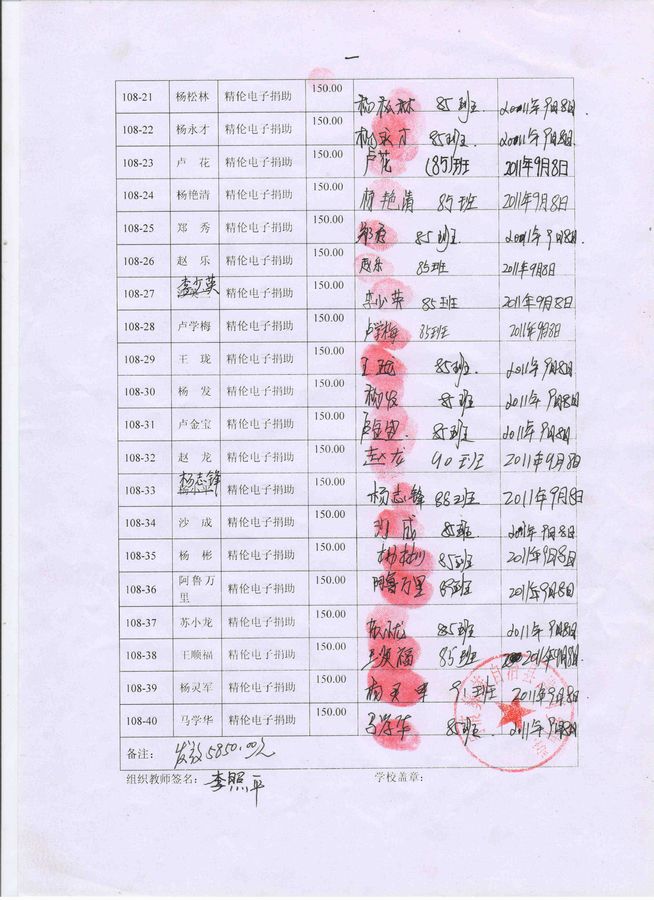 一
108-21 杨松林 精伦电子捐助 150.00 杨松林 85班 2011年9月8日
108-22 杨永才 精伦电子捐助 150.00 杨永才 85班 2011年9月8日
108-23 卢 花 精伦电子捐助 150.00 卢花 (85)班 2011年9月8日
108-24 杨艳清 精伦电子捐助 150.00 杨艳清 85班 2011年9月8日
108-25 郑 秀 精伦电子捐助 150.00 郑秀 85班 2011年9月8日
108-26 赵 乐 精伦电子捐助 150.00 赵乐 85班 2011年9月8日
108-27 李少英 精伦电子捐助 150.00 李少英 85班 2011年9月8日
108-28 卢学梅 精伦电子捐助 150.00 卢学梅 85班 2011年9月8日
108-29 王 珑 精伦电子捐助 150.00 王珑 85班 2011年9月8日
108-30 杨 发 精伦电子捐助 150.00 杨发 85班 2011年9月8日
108-31 卢金宝 精伦电子捐助 150.00 卢金宝 85班 2011年9月8日
108-32 赵 龙 精伦电子捐助 150.00 赵龙 90班 2011年9月8日
108-33 杨志锋 精伦电子捐助 150.00 杨志锋 88班 2011年9月8日
108-34 沙 成 精伦电子捐助 150.00 沙成 85班 2011年9月8日
108-35 杨 彬 精伦电子捐助 150.00 杨彬 85班 2011年9月8日
108-36 阿鲁万里 精伦电子捐助 150.00 阿鲁万里 89班 2011年9月8日
108-37 苏小龙 精伦电子捐助 150.00 苏小龙 85班 2011年9月8日
108-38 王顺福 精伦电子捐助 150.00 王顺福 85班 2011年9月8日
108-39 杨灵军 精伦电子捐助 150.00 杨灵军 91班 2011年9月8日
108-40 马学华 精伦电子捐助 150.00 马学华 85班 2011年9月8日
备注: 发放5850.00元
组织教师签名: 李照平 学校盖章: